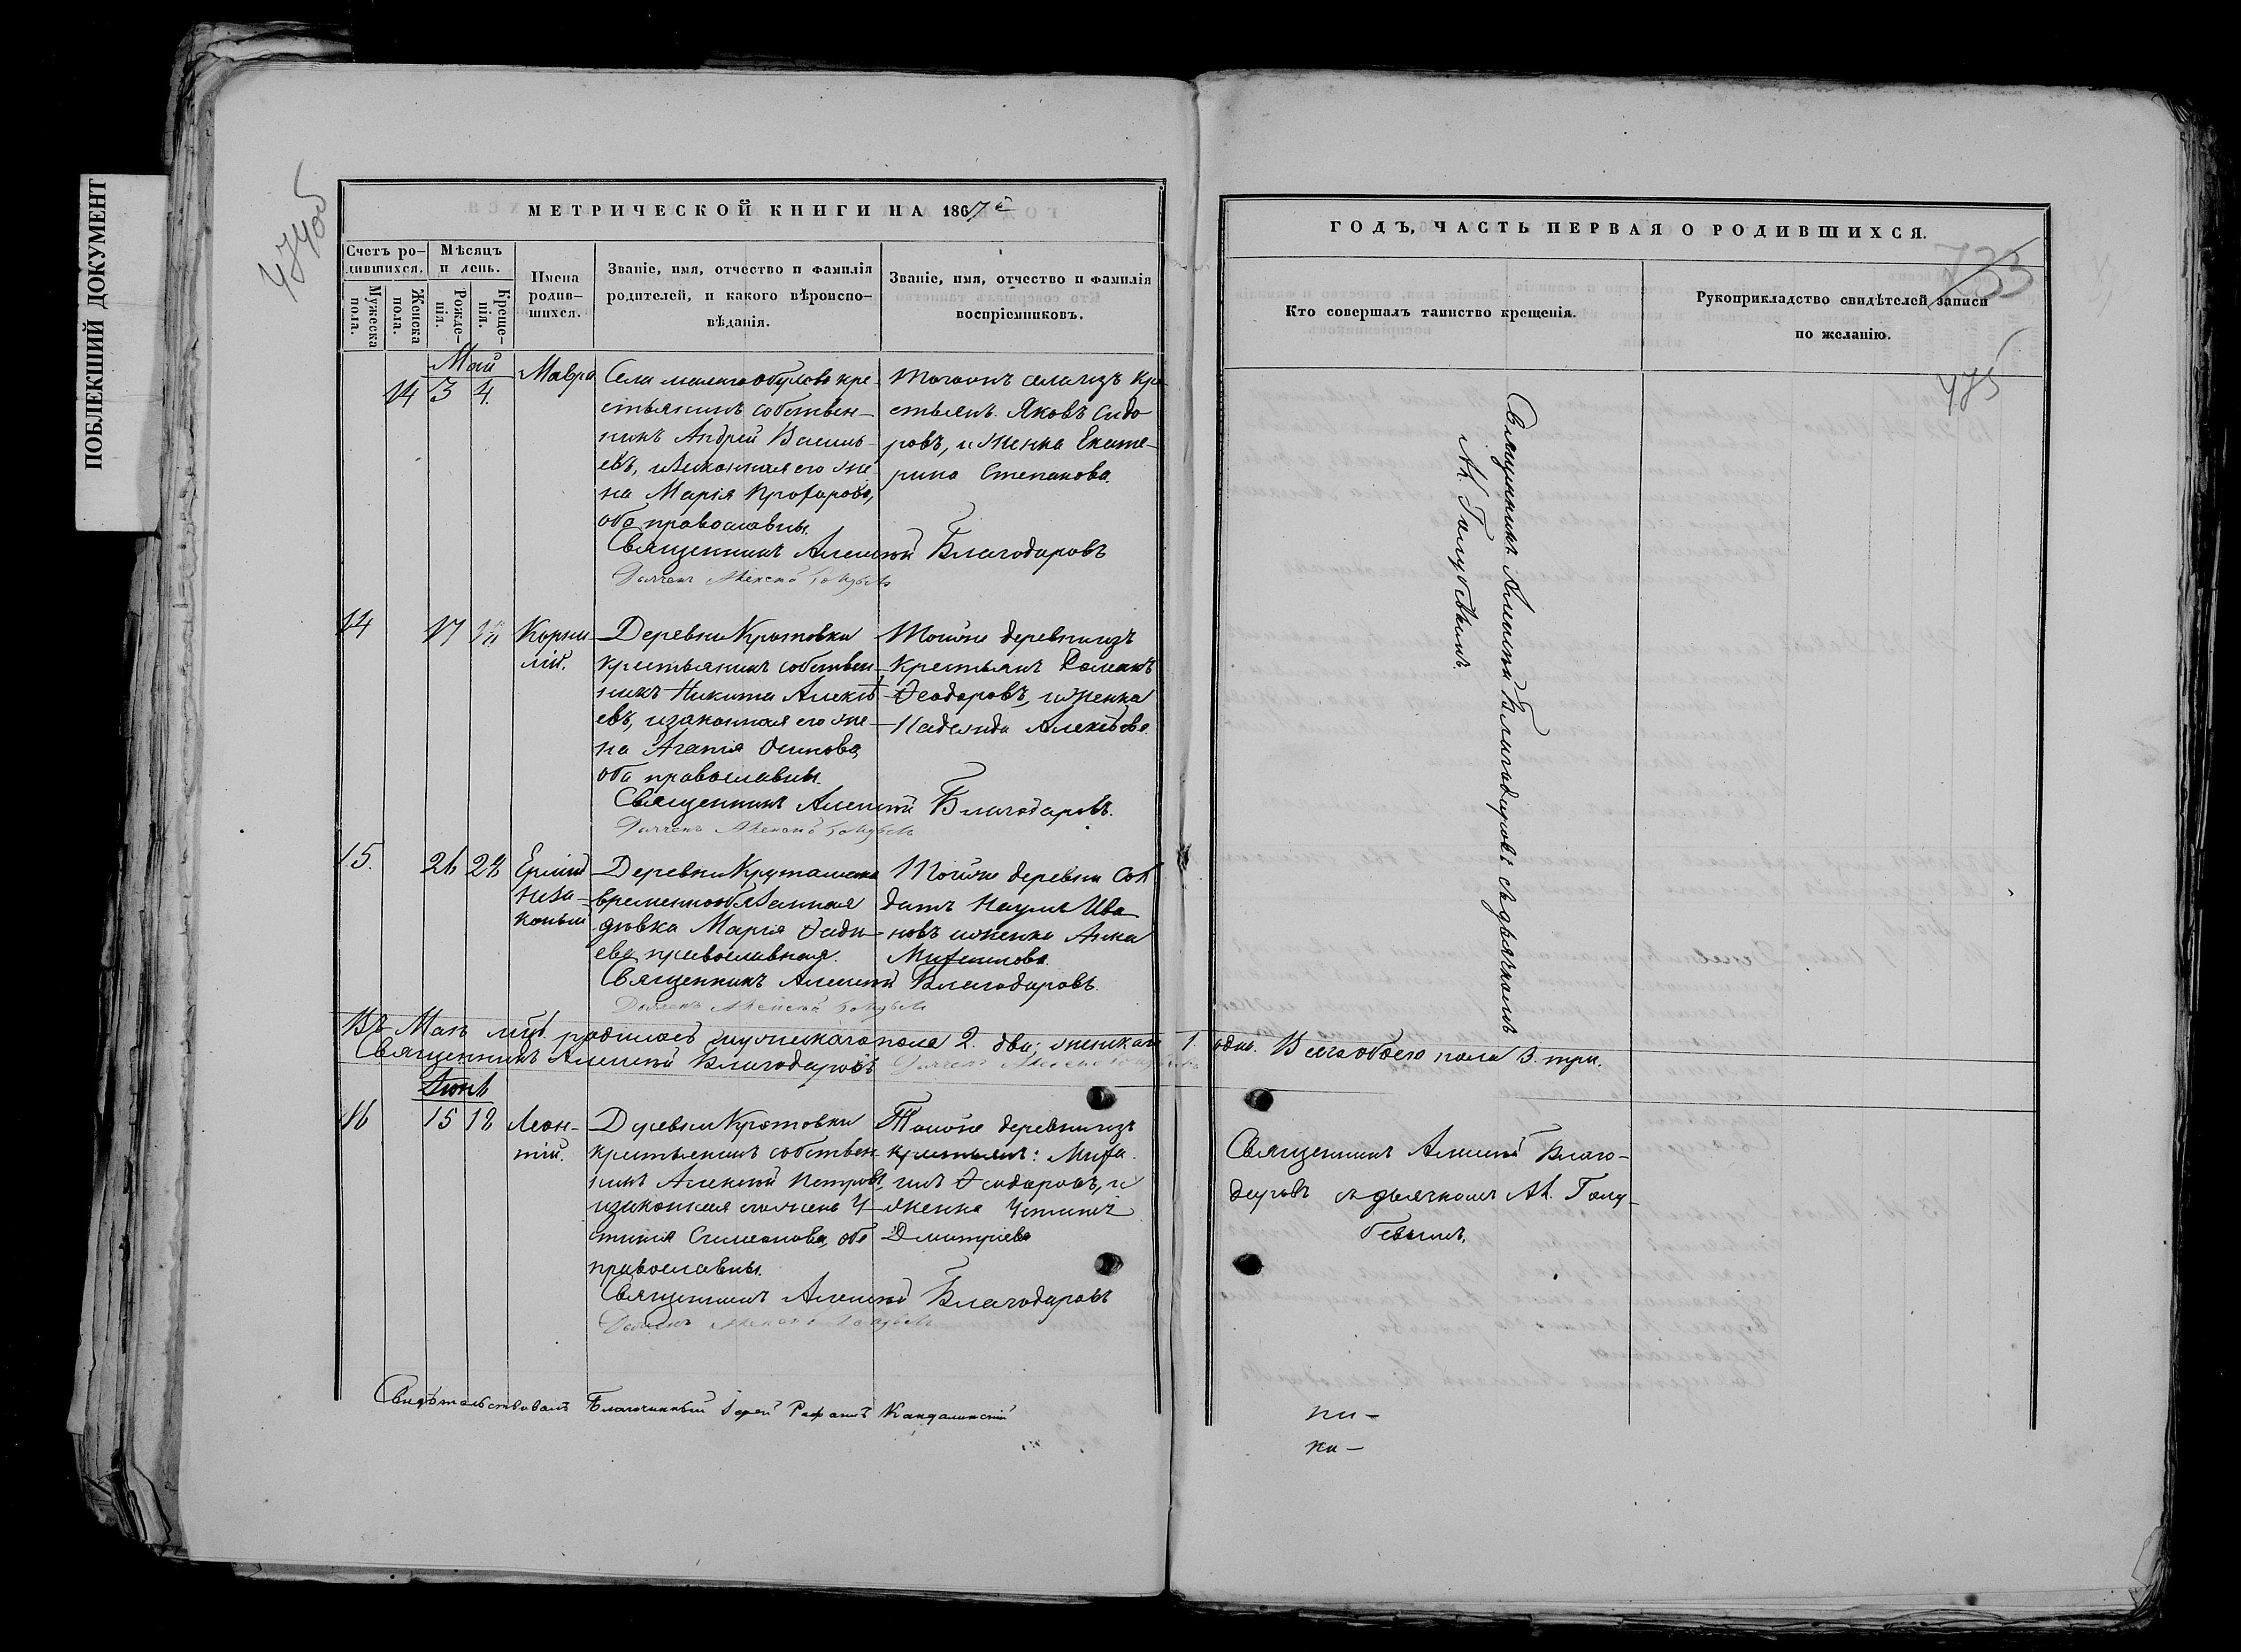 ПОБЛЕКШИЙ ДОКУМЕНТ
474об
МЕТРИЧЕСКОЙ КНИГИ НА 1867й
Счетъ ро-
дившихся.
Мѣсяцъ
и день.
Имена
родив-
шихся.
Званіе, имя, отчество и фамилія
родителей, и какого вѣроиспо-
вѣданія.
Званіе, имя, отчество и фамилія
воспріемниковъ.
Мужеска
пола.
Женска
пола.
Рожде-
нія.
Креще-
нія.
Май
14 3 4.
Мавра
Села кре-
стьянинъ собствен-
никъ Андрей Василь-
евъ, и законная его же-
на Марія
оба православны.
Священникъ Алексій Благодаровъ
Дьячекъ Алексѣй
Тогожъ села изъ кре
стьянъ Яковъ Сидо
ровъ, и женка Екате-
рина Степанова.
14 17 18
Корни
лій.
Деревни Кротовки
крестьянинъ собствен
никъ Никита Алексѣ
евъ, и законная его же-
на Агапія Осипова,
оба православны.
Священникъ Алексій Благодаровъ.
Дьячекъ Алексѣй
Тойже деревни изъ
крестьянъ Романъ
Ѳеодоровъ, и женка
Надежда Алексѣева.
15. 26 28
Ермій
неза-
конный
Деревни
временнообязанная
дѣвка Марія
ева православная.
Священникъ Алексій Благодаровъ.
Дьячекъ Алексѣй
Тойже деревни Сол
датъ Наумъ Ива
новъ и женка Анна
Михаилова.
Въ Маѣ мцѣ родилось мужескаго пола 2. два; женскаго 1. одна. Всего обоего пола 3. три.
Священникъ Алексій Благодаровъ
Іюнь
16 15 18
Леон-
тій.
Деревни Кротовки
крестьянинъ собствен
никъ Алексій Петровъ,
и законная его жена У-
стинія Симеонова, оба
православны.
Священникъ Алексій Благодаровъ
Дьячекъ Алексѣй
Тойже деревни изъ
крестьянъ: Миха
илъ Ѳеодоровъ, и
женка Устинія
Дмитріева
Свидѣтельствовалъ Благочинный Іерей Рафаилъ Кандалинскій
ГОДЪ, ЧАСТЬ ПЕРВАЯ О РОДИВШИХСЯ.
733
475
Кто совершалъ таинство крещенія.
Рукоприкладство свидѣтелей записи
по желанію.
Священникъ Алексій Благодаровъ съ дьячкомъ
Ал. Голубевымъ.
Священникъ Алексій Благо-
даровъ съ дьячкомъ Ал. Голу-
бевымъ.